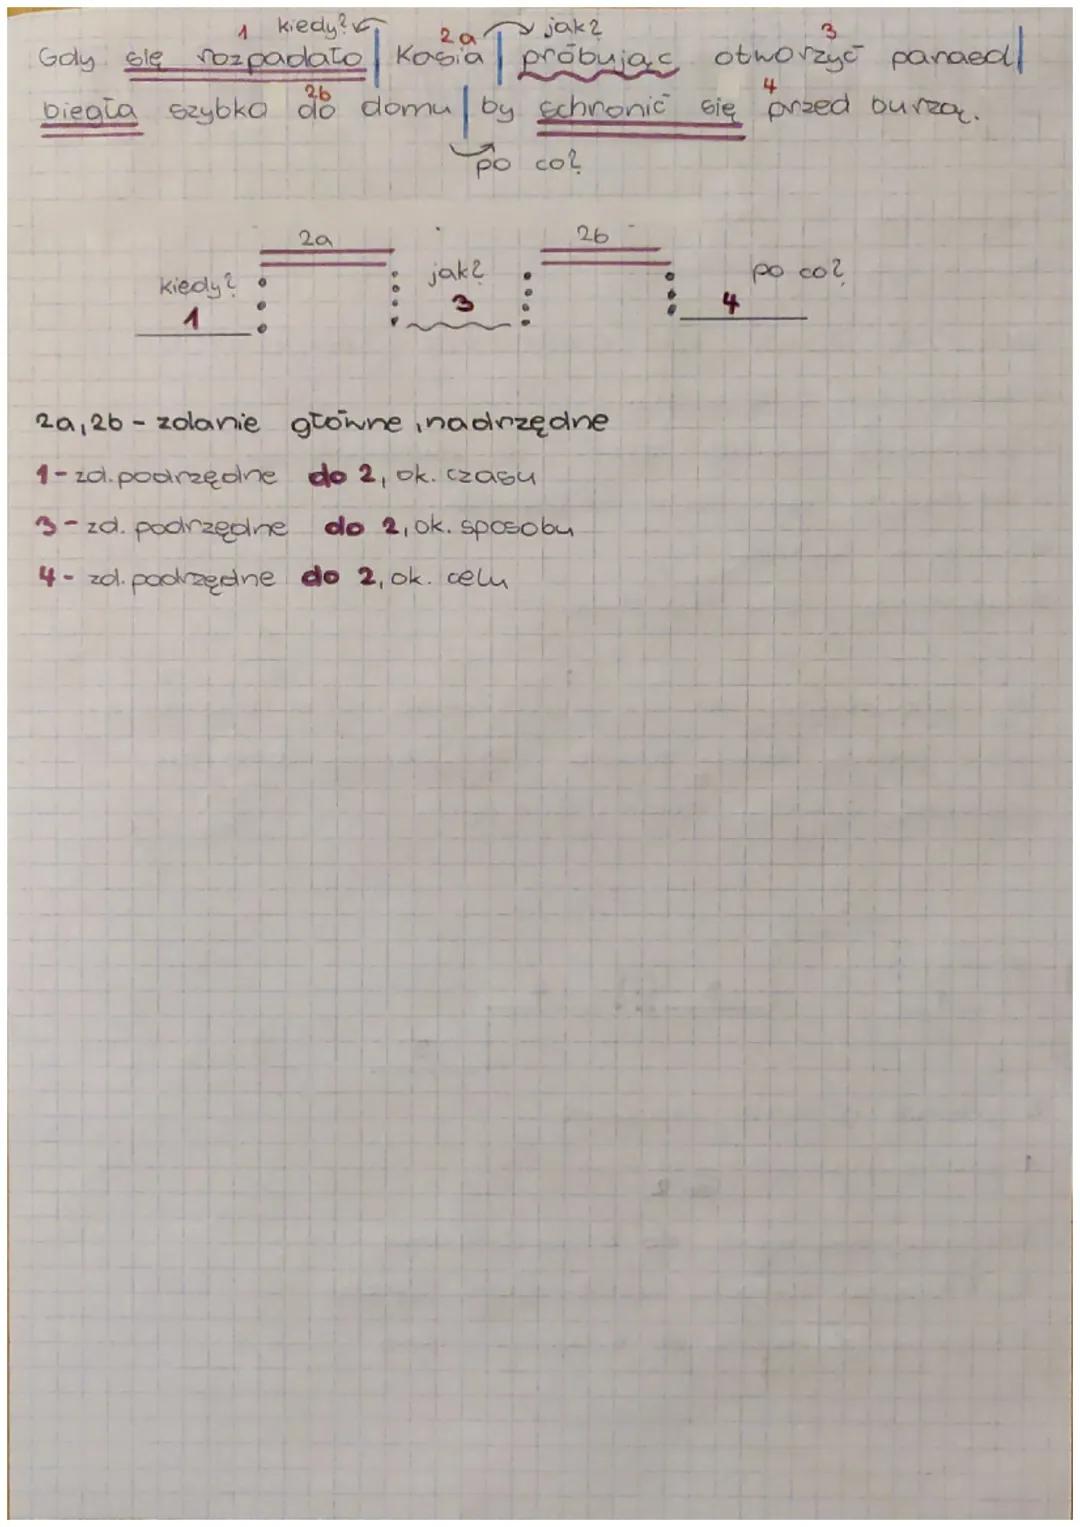 1 kiedy? 2a jak? 3
Gdy się rozpadało | Kasia | próbując otworzyć parasol |
2b 4
biegła szybko do domu | by schronić się przed burzą.
po co?
2a 2b
kiedy? jak? po co?
1 3 4
2a, 2b - zdanie główne, nadrzędne
1 - zd. podrzędne do 2, ok. czasu
3 - zd. podrzędne do 2, ok. sposobu
4 - zd. podrzędne do 2, ok. celu